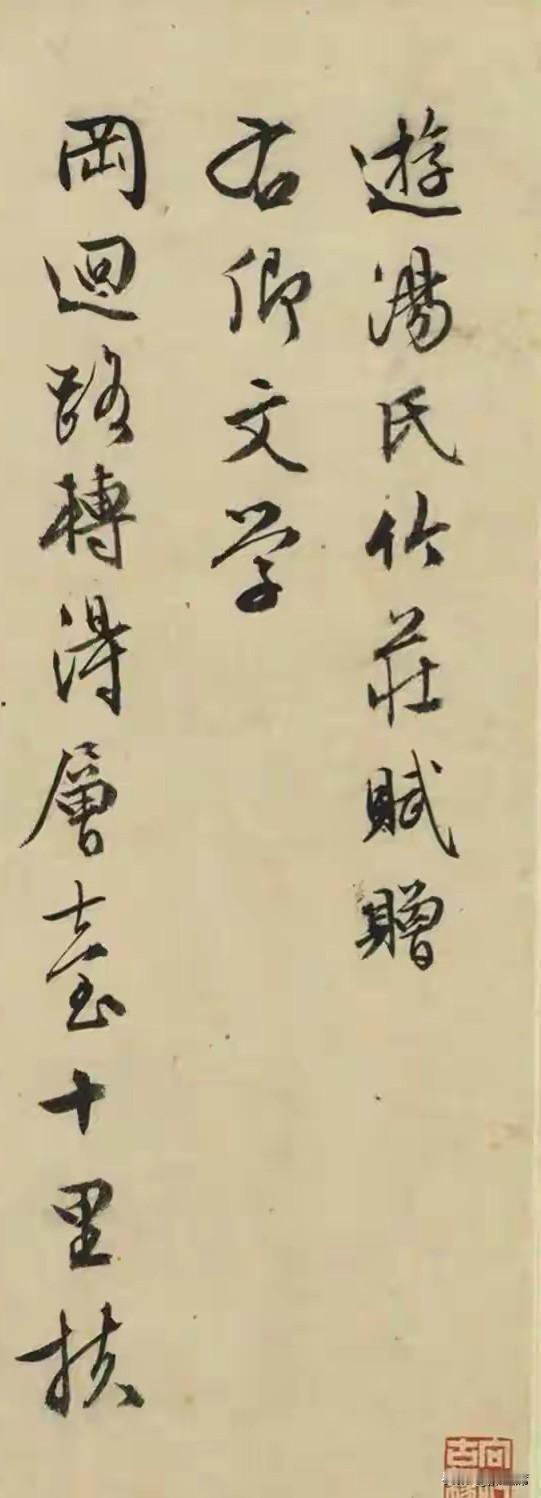 遊湯氏竹莊賦贈
右卿文学
岡迴路轉得層臺十里扶